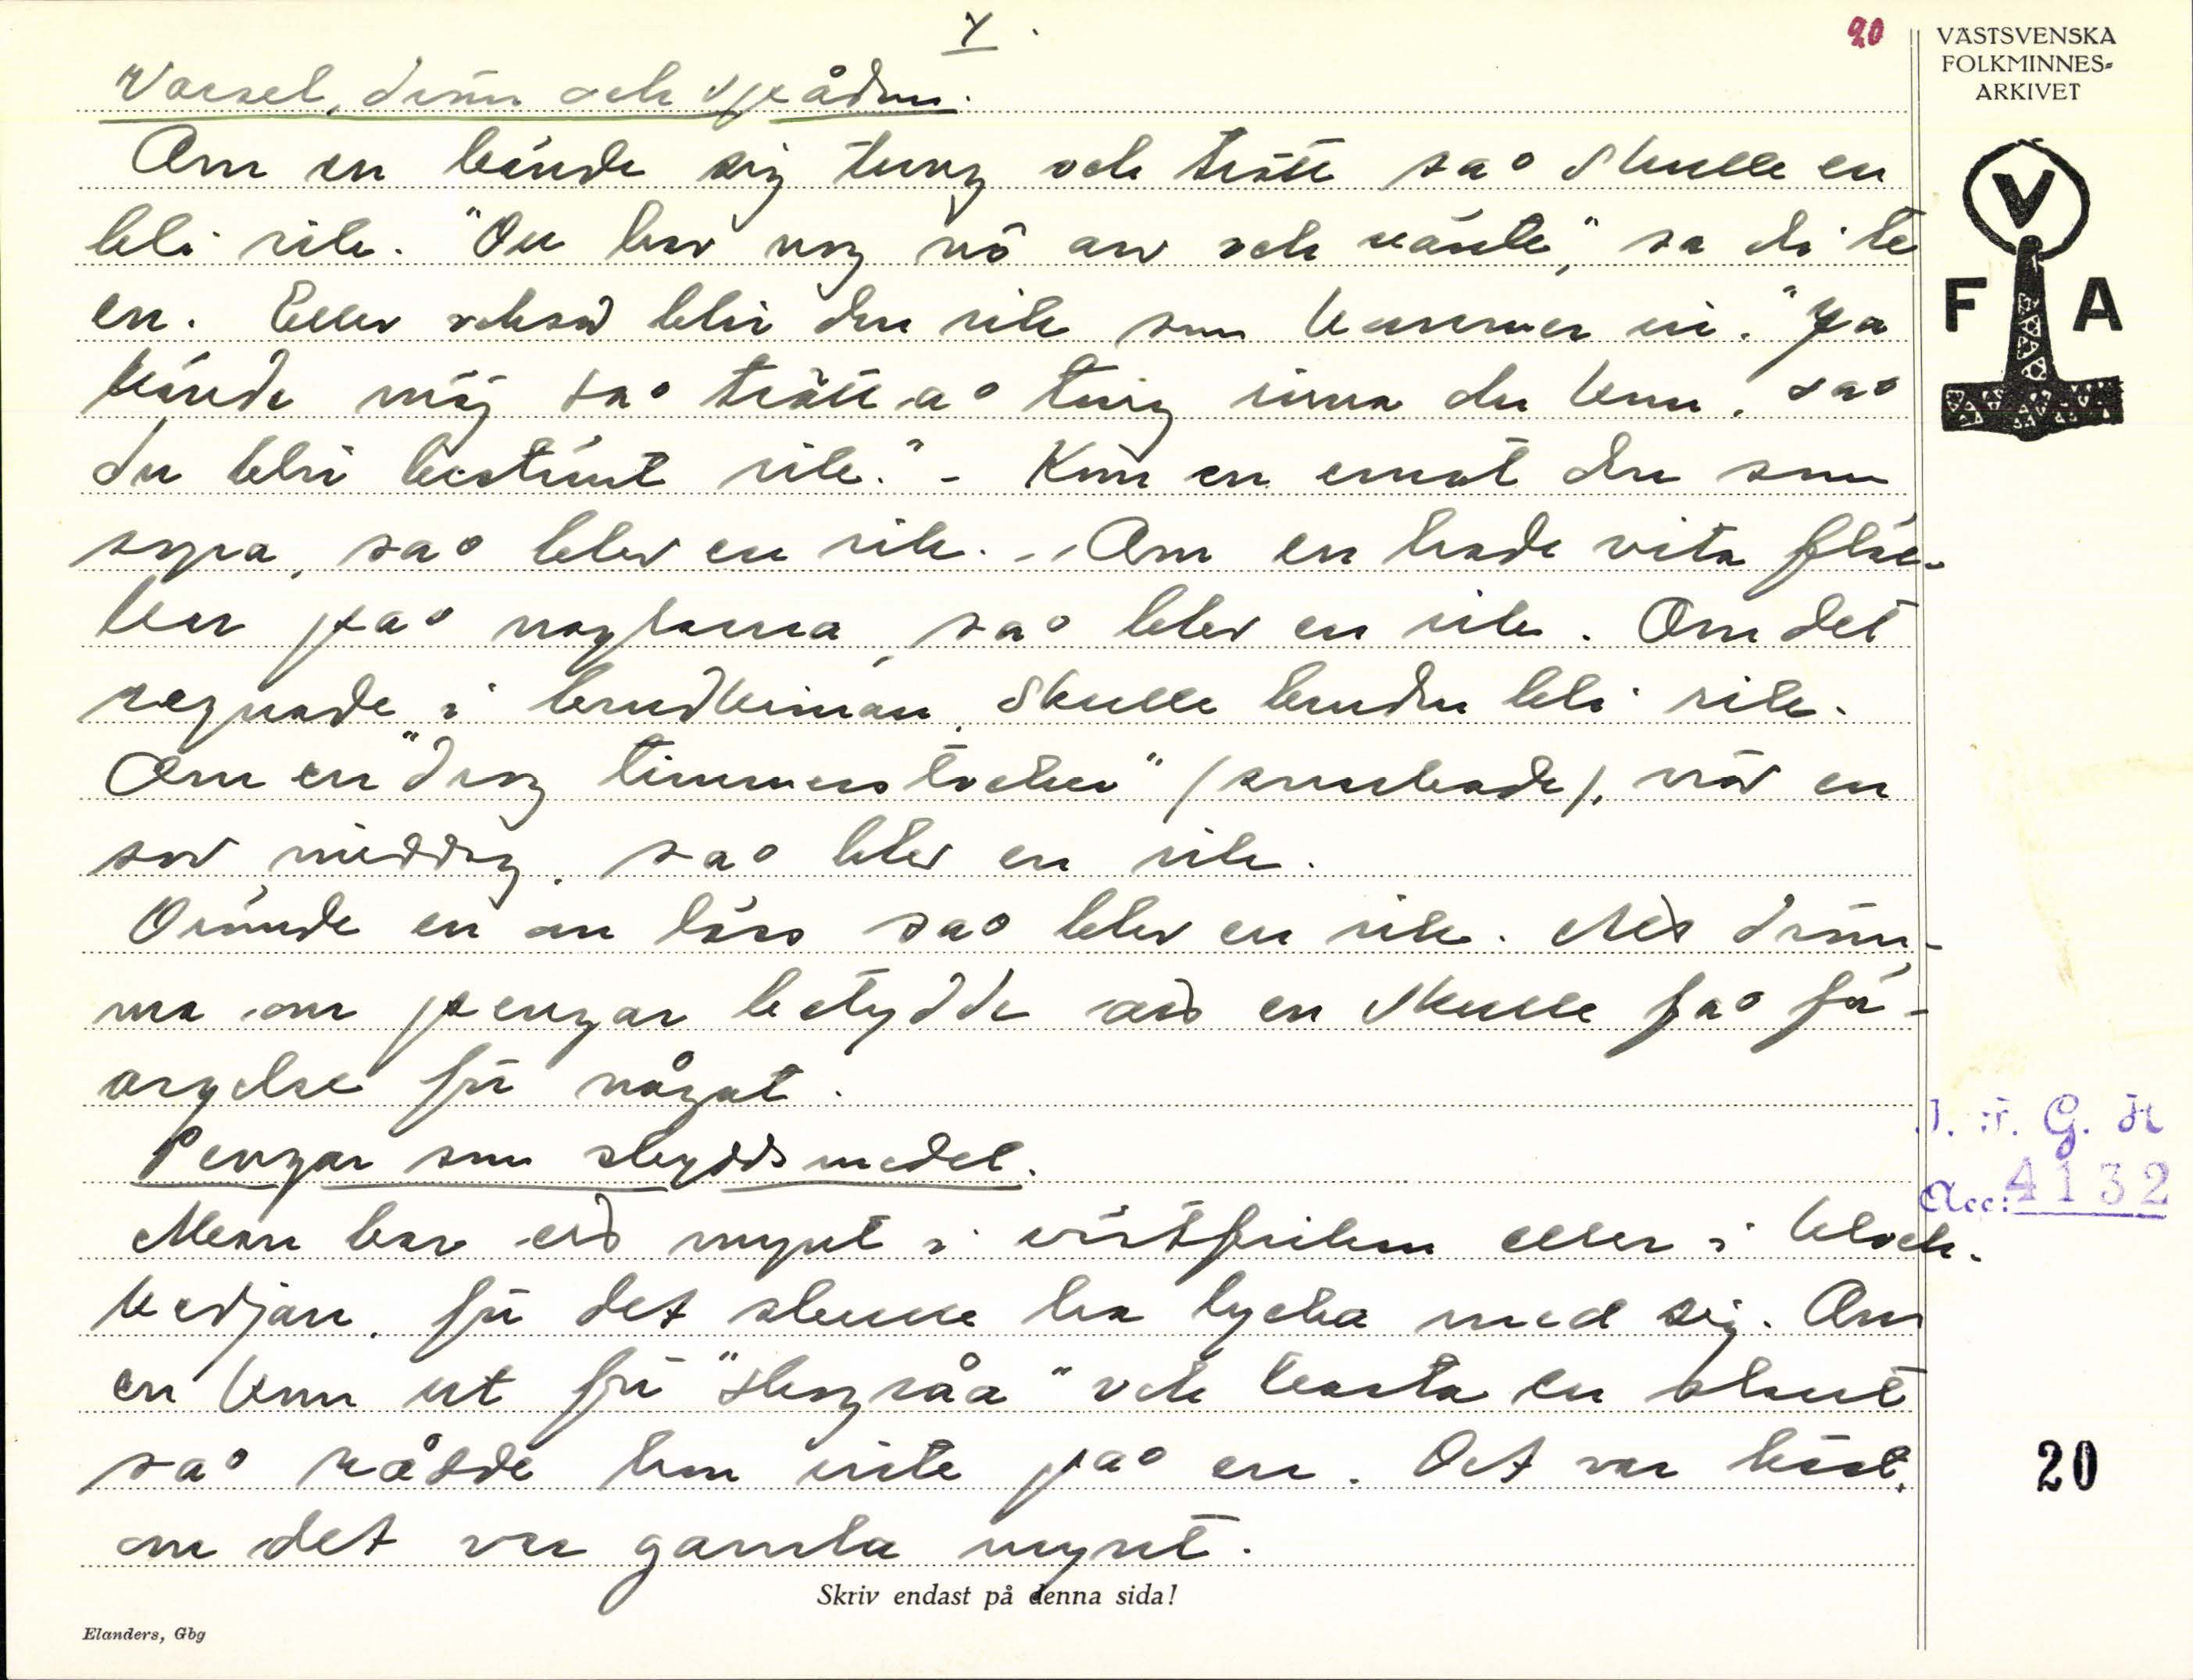 4.
20
VÄSTSVENSKA
FOLKMINNES-
ARKIVET
Varsel, dröm och spådom.
Om en kände sig tung och trött så skulle en
bli rik. "Du har nog nå arv och vänte," sa di te
en. Eller också blir den rik som kommer in. "Ja
kände mäj så trött å tung innan du kom, så
du blir bestämt rik." - Kom en emot den som
sopa, så blev en rik. - Om en hade vita fläc-
kar på naglarna, så blev en rik. Om det
regnade i brudkronan, skulle bruden bli rik.
Om en "drog timmerstocker" (snarkade), när en
sov middag, så blev en rik.
Drömde en om löss så blev en rik. Att dröm-
ma om pengar betydde att en skulle få för-
argelse för något.
Pengar som skyddsmedel.
Man bar ett mynt i västfickan eller i klock-
kedjan, för det skulle ha lycka med sig. Om
en kom ut för "skogsråa" och kasta en slant
så rådde hon inte på en. Det var bäst,
om det var gamla mynt.
V
F A
I. F. G. H
Acc: 4132
20
Skriv endast på denna sida!
Elanders, Gbg